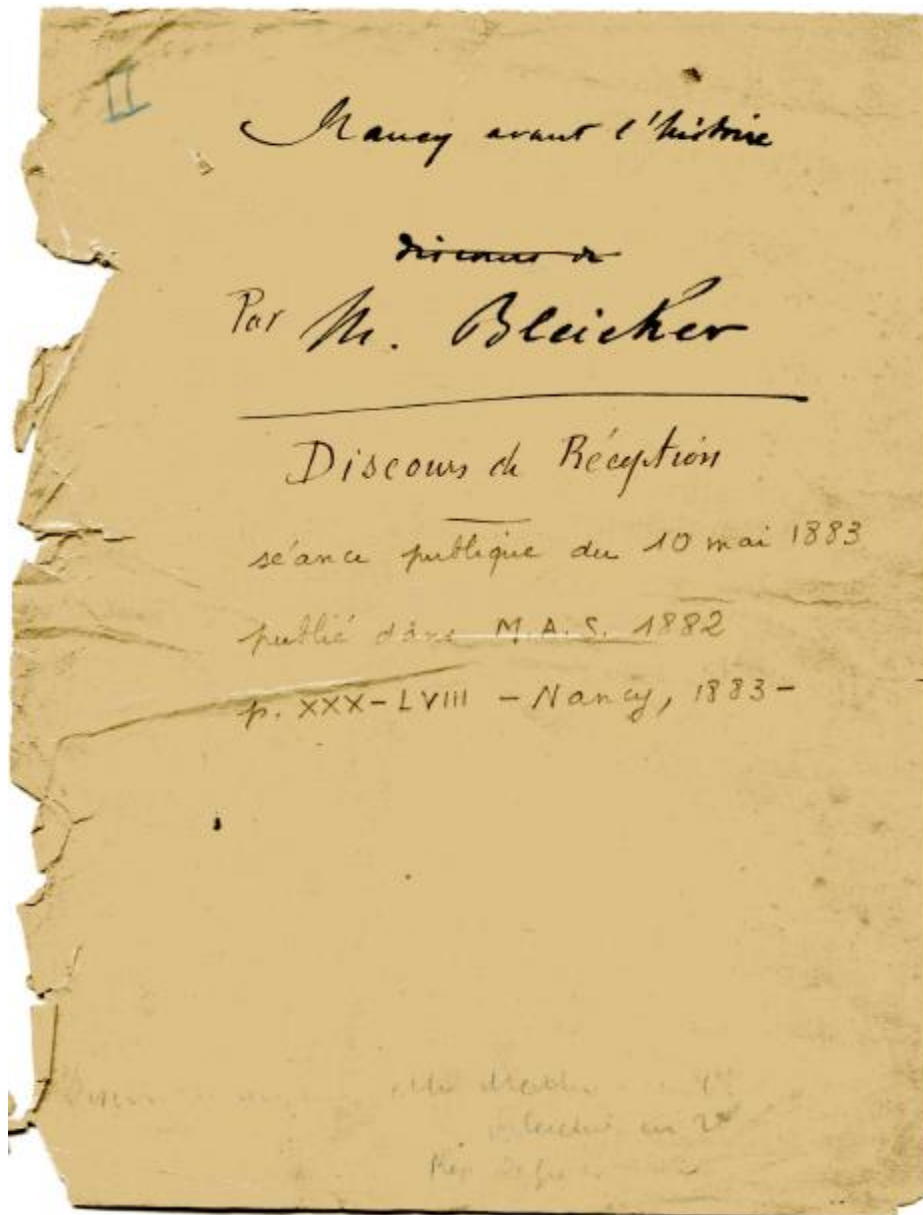 II
Nancy avant l'histoire
discours de
Par M. Bleicher
Discours de Réception
séance publique du 10 mai 1883
publié dans M.A.S. 1882
p. XXX-LVIII - Nancy, 1883-